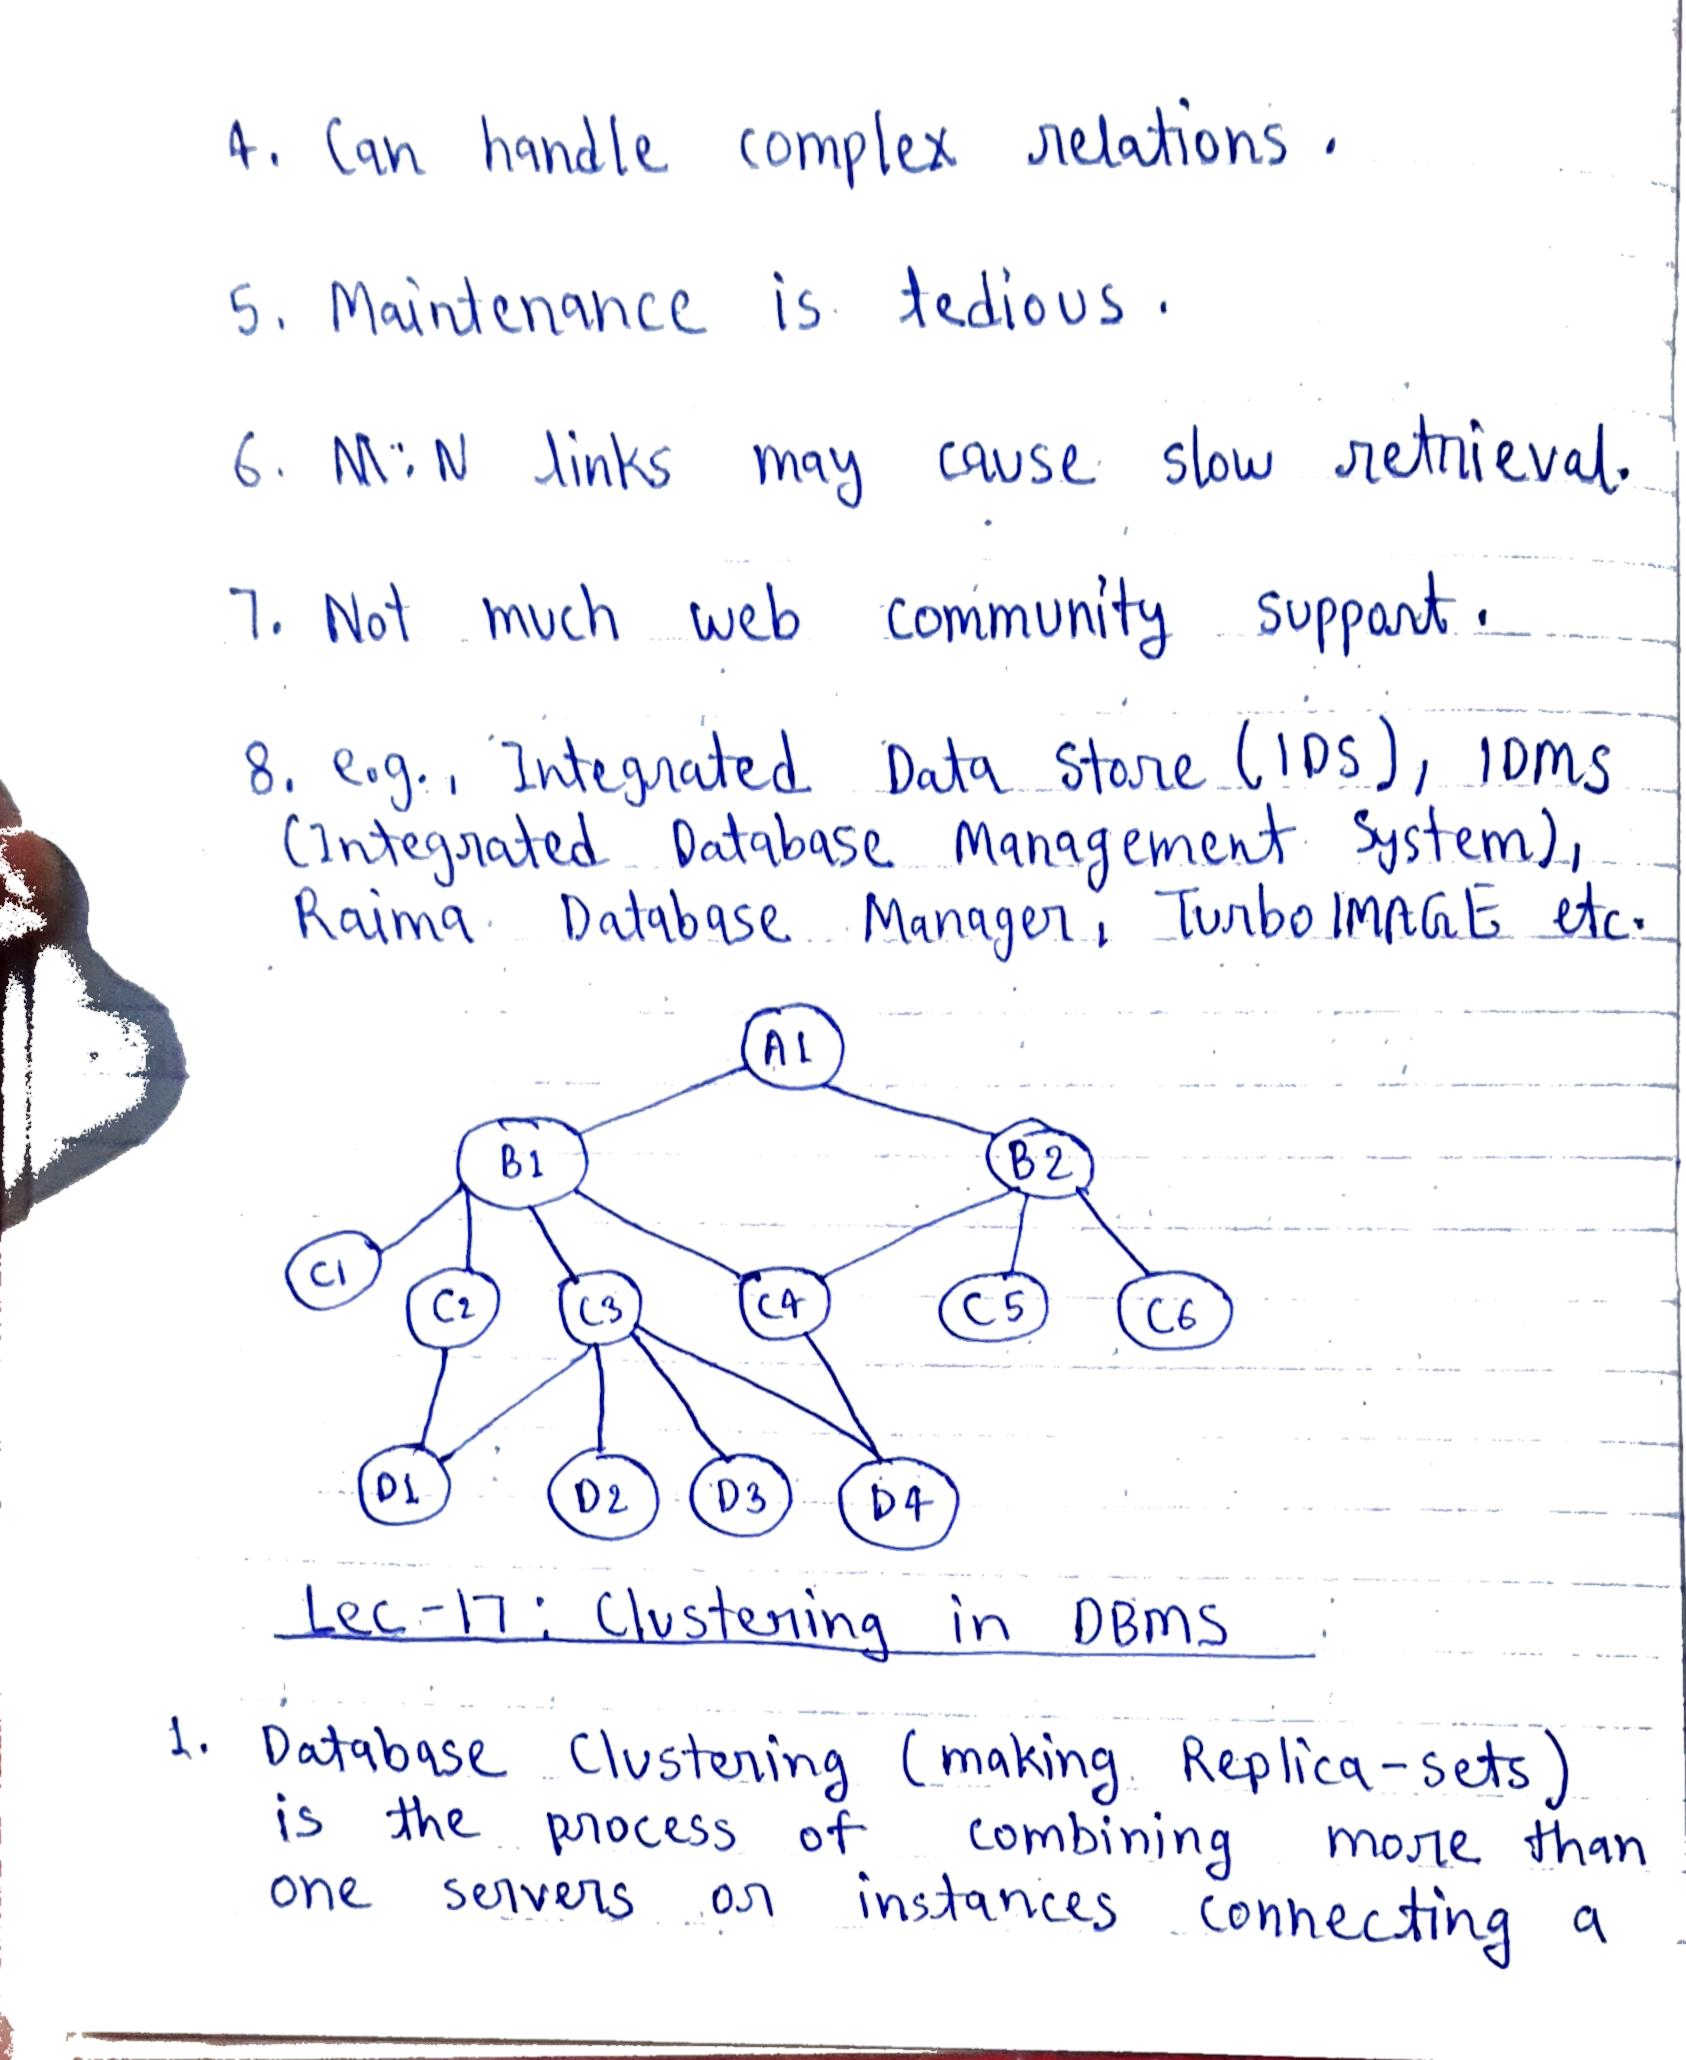 4. Can handle complex relations.
5. Maintenance is tedious.
6. M:N links may cause slow retrieval.
7. Not much web community support.
8. e.g., Integrated Data Store (IDS), IDMS
(Integrated Database Management System),
Raima Database Manager, TurboIMAGE etc.
A1
B1 B2
C1 C2 C3 C4 C5 C6
D1 D2 D3 D4
Lec-17: Clustering in DBMS
1. Database Clustering (making Replica-sets)
is the process of combining more than
one servers or instances connecting a